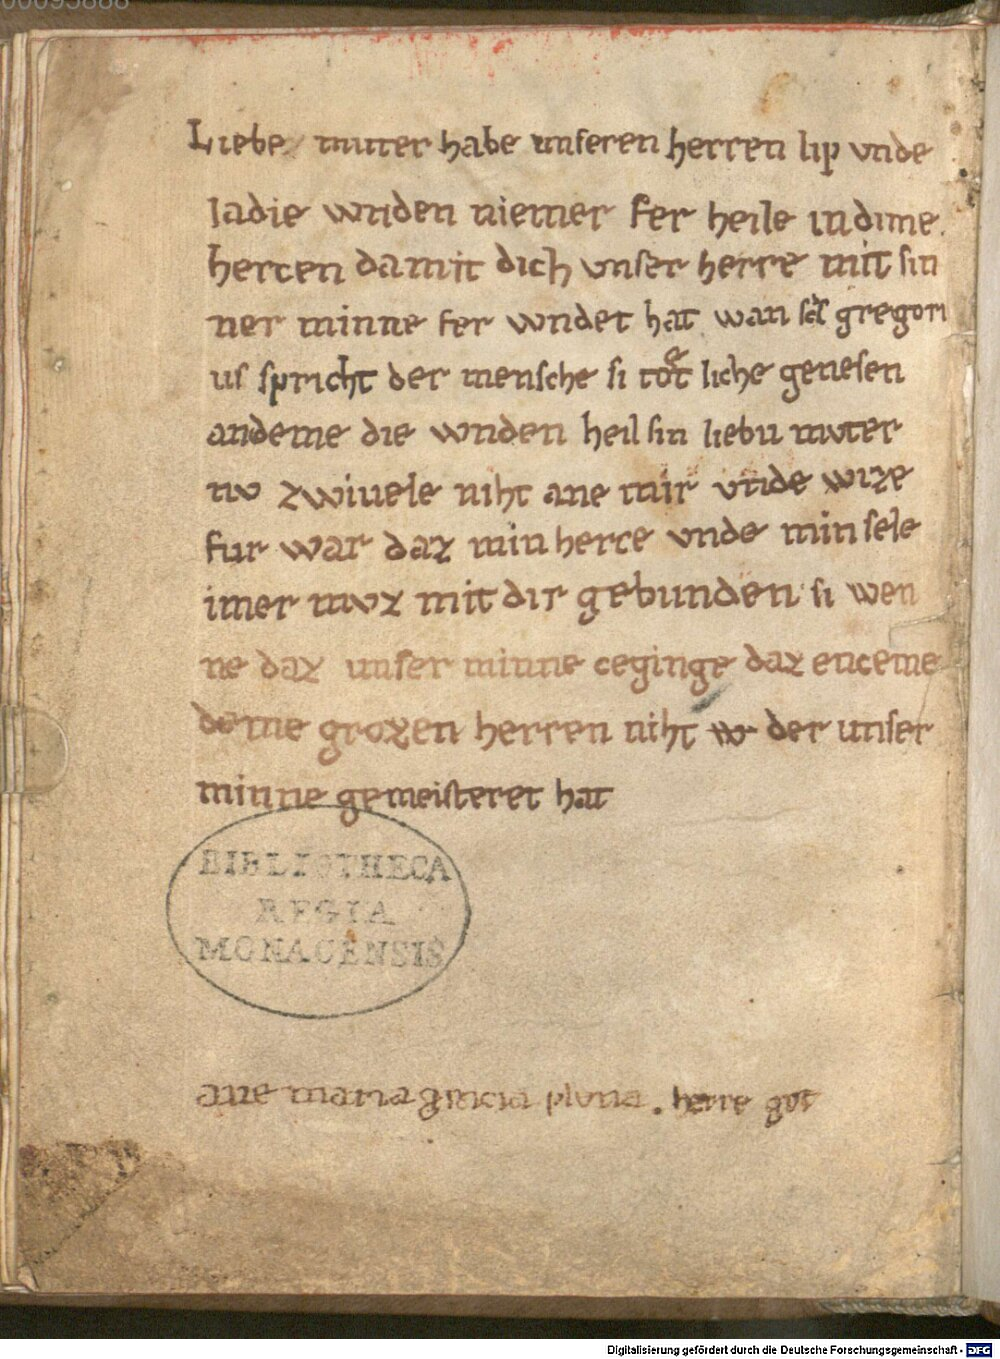 00095888
Liebe muter habe unseren herren lip vnde
ladie wnden niemer fer heile in dime
hercen da mit dich vnser herre mit sin
ner minne fer wndet hat wan scs gregori
us spricht der mensche si totͤ liche genesen
an deme die wnden heil sin liebu mvter
nv zwiuele niht ane mir vnde wize
fur war daz min herce vnde min sele
imer mvz mit dir gebunden si wen
ne daz unser minne ceginge daz enceme
deme grozen herren niht w der unser
minne gemeisteret hat
BIBLIOTHECA
REGIA
MONACENSIS
aue maria gracia plena. herre got
Digitalisierung gefördert durch die Deutsche Forschungsgemeinschaft - DFG